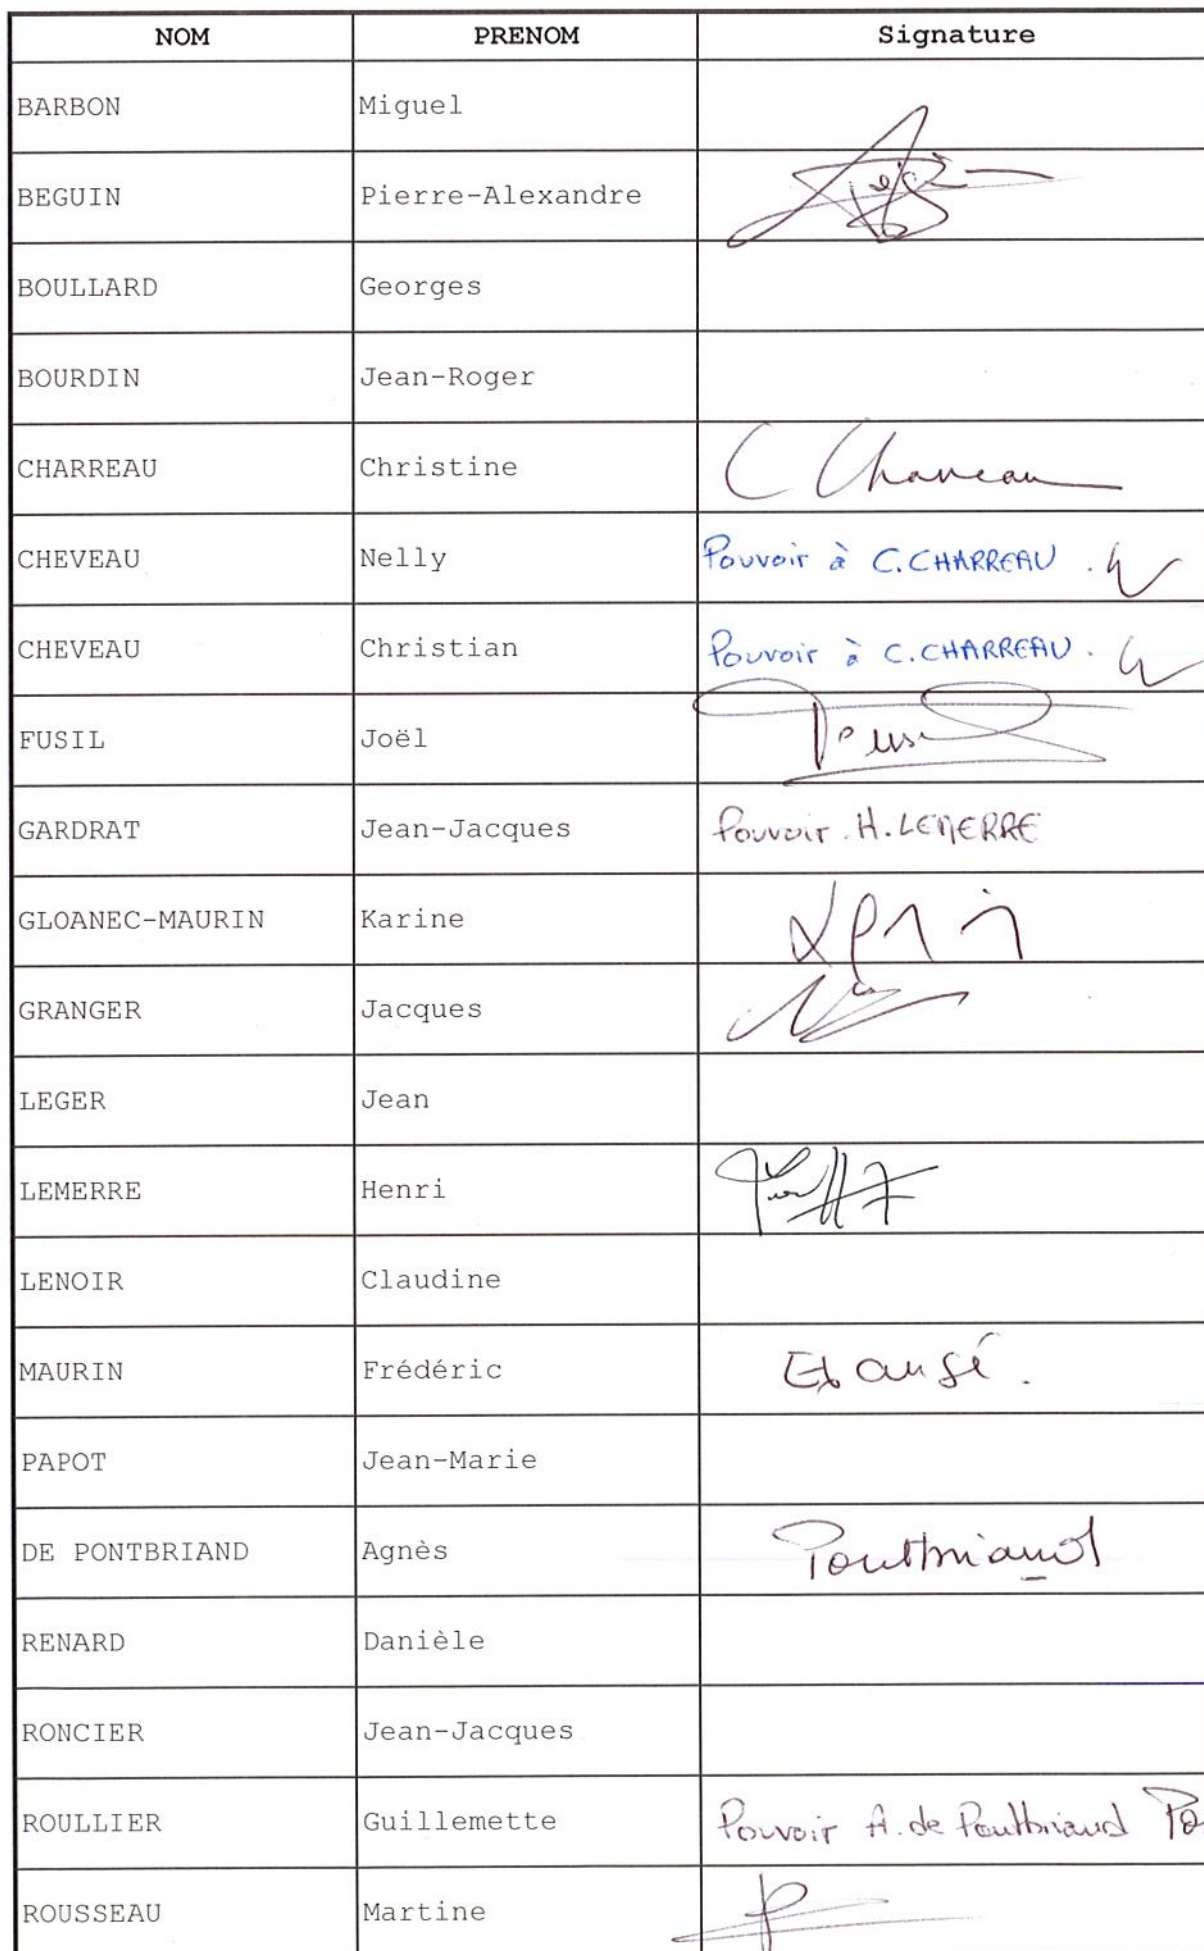 NOM PRENOM Signature
BARBON Miguel
BEGUIN Pierre-Alexandre
BOULLARD Georges
BOURDIN Jean-Roger
CHARREAU Christine C Charreau
CHEVEAU Nelly Pouvoir à C. CHARREAU.
CHEVEAU Christian Pouvoir à C. CHARREAU.
FUSIL Joël
GARDRAT Jean-Jacques Pouvoir. H. LEMERRE
GLOANEC-MAURIN Karine
GRANGER Jacques
LEGER Jean
LEMERRE Henri
LENOIR Claudine
MAURIN Frédéric
PAPOT Jean-Marie
DE PONTBRIAND Agnès Pontbriand
RENARD Danièle
RONCIER Jean-Jacques
ROULLIER Guillemette Pouvoir A. de Pontbriand Po
ROUSSEAU Martine